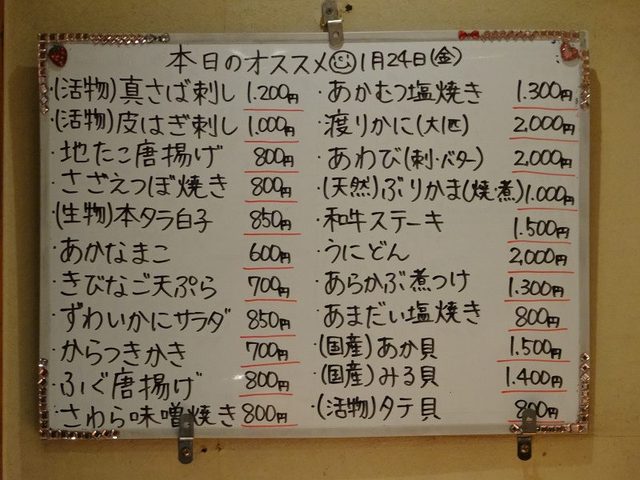 本日のオススメ☺1月24日(金)
・(活物)真さば刺し 1.200円
・(活物)皮はぎ刺し 1,000円
・地たこ唐揚げ 800円
・さざえつぼ焼き 800円
・(生物)本タラ白子 850円
・あかなまこ 600円
・きびなご天ぷら 700円
・ずわいかにサラダ 850円
・からつきかき 700円
・ふぐ唐揚げ 800円
・さわら味噌焼き 800円
・あかむつ塩焼き 1.300円
・渡りかに(大匹) 2,000円
・あわび(刺・バター) 2,000円
・(天然)ぶりかま(焼・煮) 1.000円
・和牛ステーキ 1.500円
・うにどん 2,000円
・あらかぶ煮つけ 1.300円
・あまだい塩焼き 800円
・(国産)あか貝 1.500円
・(国産)みる貝 1.400円
・(活物)タテ貝 800円